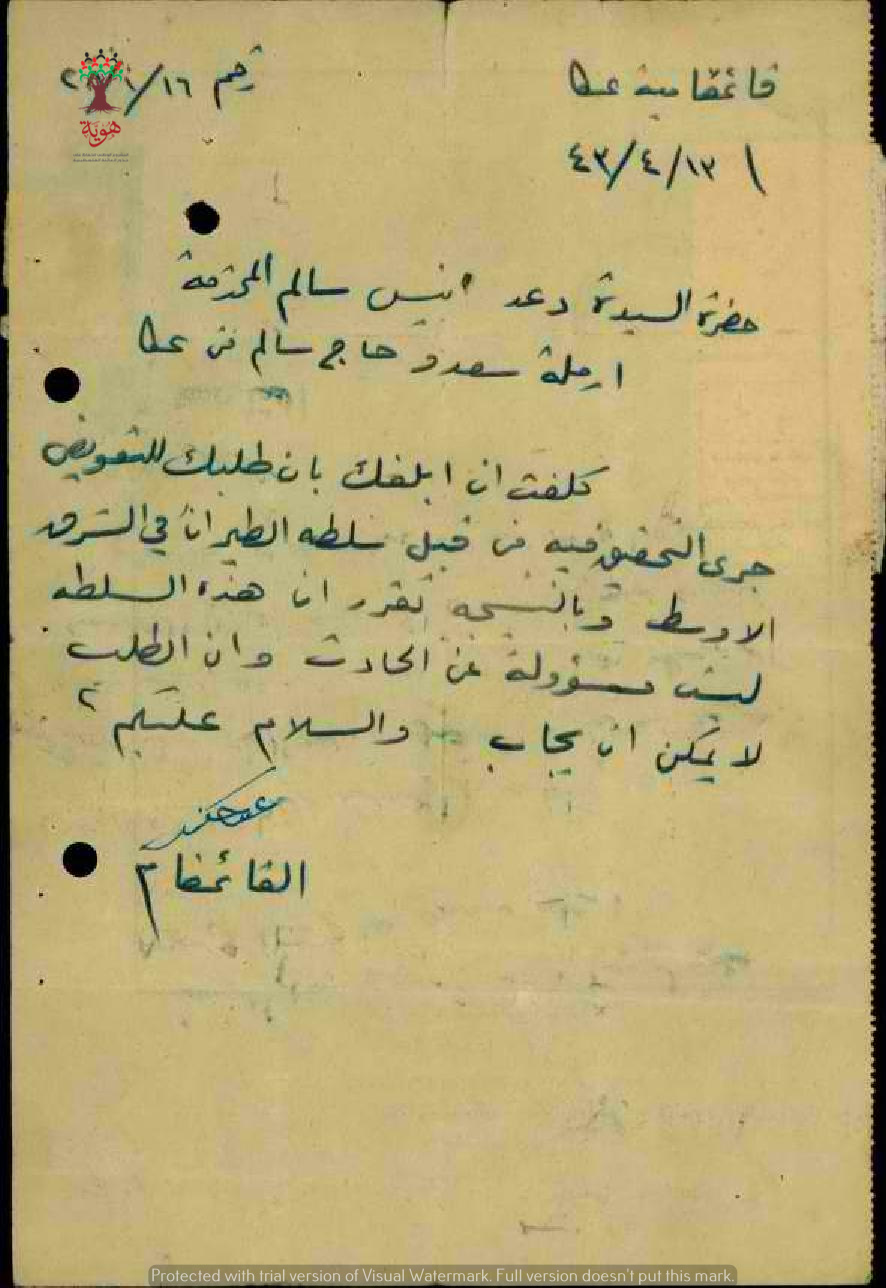 قائمقامية عكا
رقم ١٦/
١٣/٤/٤٣
هوية
حضرة السيدة دعد انيس سالم المحترمة
ارملة سعدو حاج سالم من عكا
كلفت ان ابلغك بان طلبك للتعويض
جرى التحقيق فيه من قبل سلطه الطيران في الشرق
الاوسط وبالنتيجه تقرر ان هذه السلطه
ليست مسؤولة عن الحادث وان الطلب
لا يمكن ان يجاب والسلام عليكم
القائمقام
Protected with trial version of Visual Watermark. Full version doesn't put this mark.